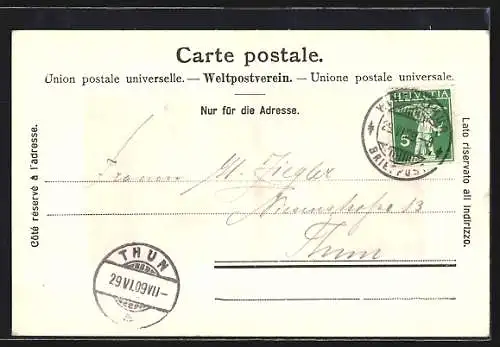 Carte postale.
Union postale universelle. — Weltpostverein. — Unione postale universale.
Nur für die Adresse.
Côté réservé à l'adresse.
Lato riservato all indirizzo.
HELVETIA
5
BRIEFPOST
M. Ziegler
13
Thun
THUN
29 VI.09 VII–